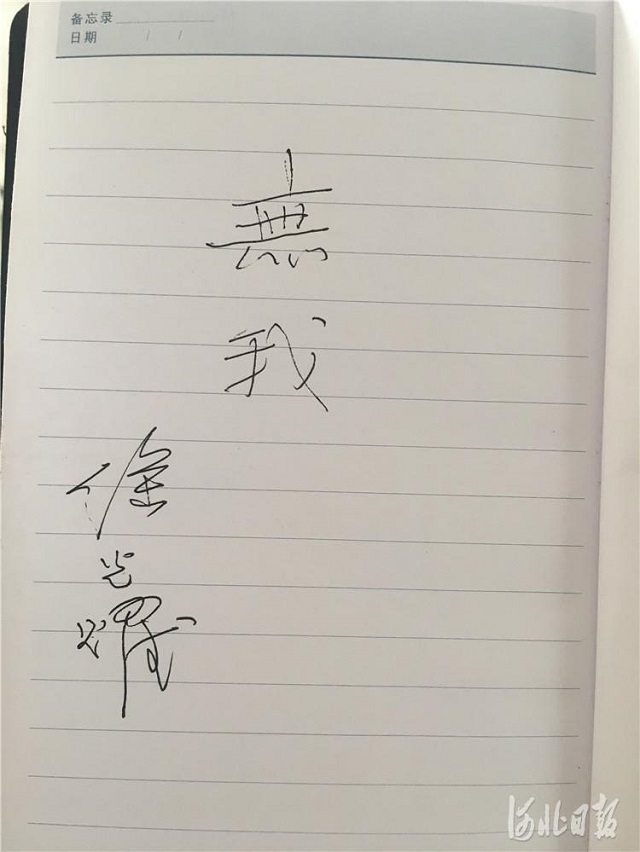 备忘录
日期 / /
無
我
徐
光
耀
河北日报